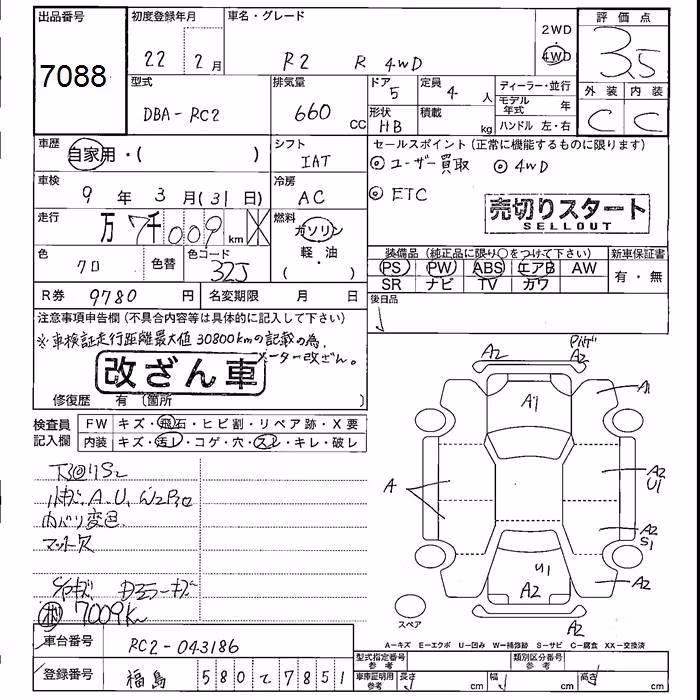 出品番号
7088
初度登録年月
22 2月
車名・グレード
R2 R 4WD
2WD
4WD
評価点
3.5
型式
DBA-RC2
排気量
660 CC
ドア
5
定員
4 人
形状
HB
積載
kg
ディーラー・並行
モデル年式 年
ハンドル 左・右
外装
内装
C
C
車歴
自家用・( )
シフト
IAT
車検
9 年 3 月(31日)
冷房
AC
走行
万 7千 009 km
燃料
ガソリン
軽・油
( )
色
クロ
色替
色コード
32J
R券 9780 円
名変期限 月 日
セールスポイント(正常に機能するものに限ります)
◎ユーザー買取 ◎4WD
◎ETC
売切りスタート
SELLOUT
装備品(純正品に限り○をつけて下さい)
PS PW ABS エアB AW
SR ナビ TV カワ
新車保証書
有・無
後日品
注意事項申告欄(不具合内容等は具体的に記入して下さい)
※車検証走行距離最大値30800kmの記載の為、
メーター改ざん。
改ざん車
修復歴 有(箇所
検査員記入欄
FW キズ・飛石・ヒビ割・リペア跡・X要
内装 キズ・汚レ・コゲ・穴・スレ・キレ・破レ
内バリ変色
マット欠
7009Km
車台番号
RC2-043186
登録番号
福島 580 て 7851
A2
A2
A1
A1
A
A2
U1
A2
S1
U1
A2
A2
A2
スペア
A-キズ E-エクボ U-凹み W-補修跡 S-サビ C-腐食 XX-交換済
型式指定番号
参考
類別区分番号
参考
車庫証明用
参考
長さ cm
幅 cm
高さ cm